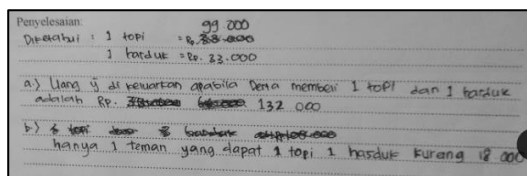 Penyelesaian:
99 000
Diketahui : 1 topi = Rp.
1 harduk = Rp. 33.000
a.) Uang yg di keluarkan apabila Denta membeli 1 topi dan 1 harduk
adalah Rp. 132 000
b.)
hanya 1 teman yang dapat 1 topi 1 hasduk kurang 18 000